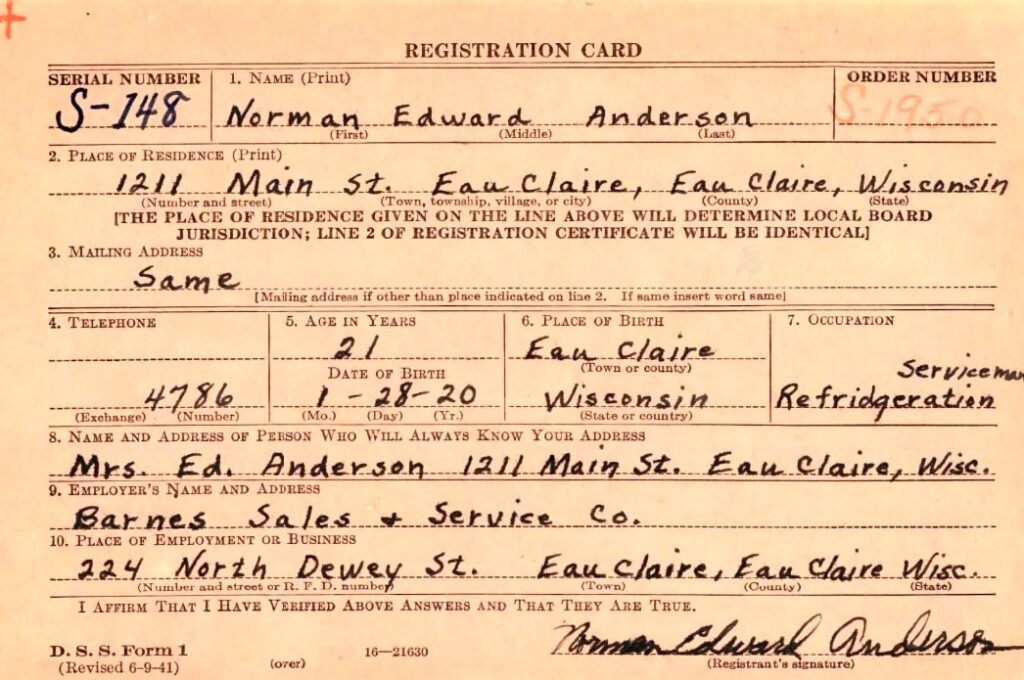 REGISTRATION CARD
SERIAL NUMBER 1. NAME (Print) ORDER NUMBER
S-148 Norman Edward Anderson S-1950
(First) (Middle) (Last)
2. PLACE OF RESIDENCE (Print)
1211 Main St. Eau Claire, Eau Claire, Wisconsin
(Number and street) (Town, township, village, or city) (County) (State)
[THE PLACE OF RESIDENCE GIVEN ON THE LINE ABOVE WILL DETERMINE LOCAL BOARD
JURISDICTION; LINE 2 OF REGISTRATION CERTIFICATE WILL BE IDENTICAL]
3. MAILING ADDRESS
Same
[Mailing address if other than place indicated on line 2. If same insert word same]
4. TELEPHONE 5. AGE IN YEARS 6. PLACE OF BIRTH 7. OCCUPATION
21 Eau Claire
(Town or county) Serviceman
DATE OF BIRTH
4786 1-28-20 Wisconsin Refridgeration
(Exchange) (Number) (Mo.) (Day) (Yr.) (State or country)
8. NAME AND ADDRESS OF PERSON WHO WILL ALWAYS KNOW YOUR ADDRESS
Mrs. Ed. Anderson 1211 Main St. Eau Claire, Wisc.
9. EMPLOYER'S NAME AND ADDRESS
Barnes Sales + Service Co.
10. PLACE OF EMPLOYMENT OR BUSINESS
224 North Dewey St. Eau Claire, Eau Claire Wisc.
(Number and street or R. F. D. number) (Town) (County) (State)
I AFFIRM THAT I HAVE VERIFIED ABOVE ANSWERS AND THAT THEY ARE TRUE.
Norman Edward Anderson
D. S. S. Form 1 16—21630
(Revised 6-9-41) (over) (Registrant's signature)